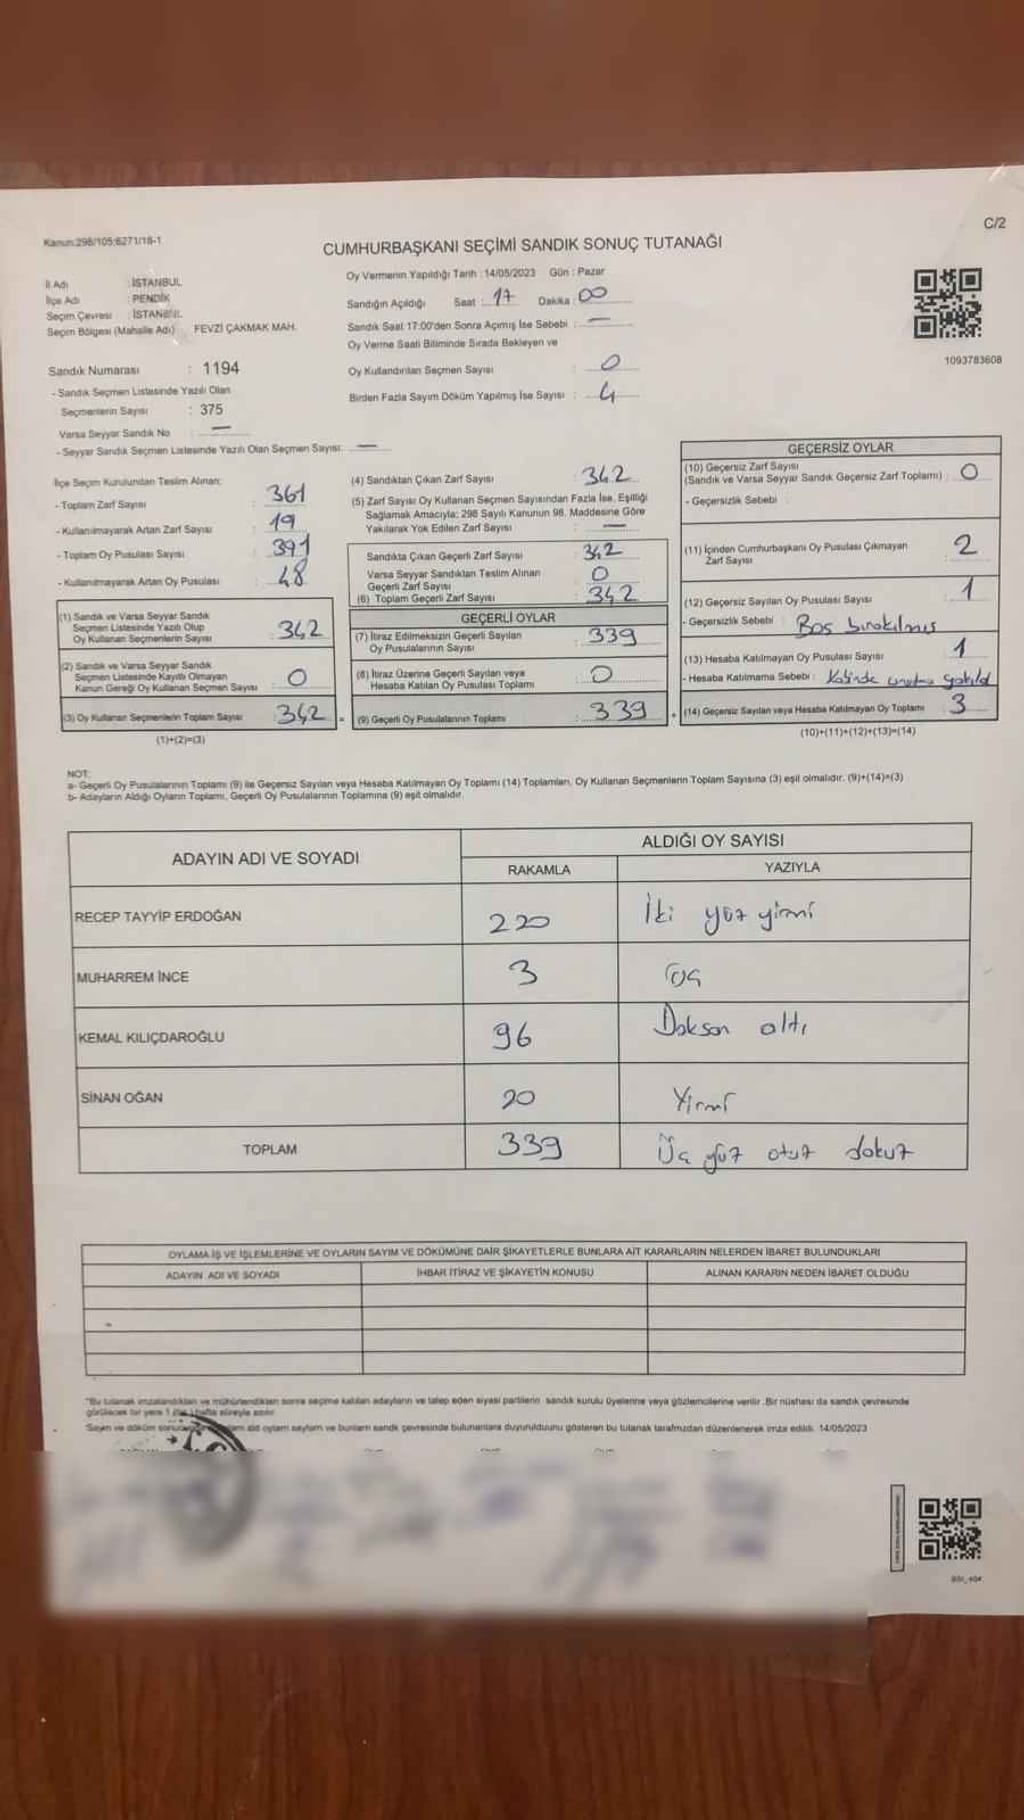 C/2
Kanun:298/105;6271/18-1
CUMHURBAŞKANI SEÇİMİ SANDIK SONUÇ TUTANAĞI
İl Adı : İSTANBUL
İlçe Adı : PENDİK
Seçim Çevresi : İSTANBUL
Seçim Bölgesi (Mahalle Adı) : FEVZİ ÇAKMAK MAH.
Sandık Numarası : 1194
- Sandık Seçmen Listesinde Yazılı Olan
Seçmenlerin Sayısı : 375
Varsa Seyyar Sandık No : —
- Seyyar Sandık Seçmen Listesinde Yazılı Olan Seçmen Sayısı: —
Oy Vermenin Yapıldığı Tarih : 14/05/2023 Gün : Pazar
Sandığın Açıldığı Saat : 17 Dakika : 00
Sandık Saat 17:00'den Sonra Açmış İse Sebebi : —
Oy Verme Saati Bitiminde Sırada Bekleyen ve
Oy Kullandırılan Seçmen Sayısı : 0
Birden Fazla Sayım Döküm Yapılmış İse Sayısı : 4
1093783608
İlçe Seçim Kurulundan Teslim Alınan:
- Toplam Zarf Sayısı : 361
- Kullanılmayarak Artan Zarf Sayısı : 19
- Toplam Oy Pusulası Sayısı : 391
- Kullanılmayarak Artan Oy Pusulası : 48
(1) Sandık ve Varsa Seyyar Sandık
Seçmen Listesinde Yazılı Olup
Oy Kullanan Seçmenlerin Sayısı : 342
(2) Sandık ve Varsa Seyyar Sandık
Seçmen Listesinde Kayıtlı Olmayan
Kanun Gereği Oy Kullanan Seçmen Sayısı : 0
(3) Oy Kullanan Seçmenlerin Toplam Sayısı : 342
(1)+(2)=(3)
(4) Sandıktan Çıkan Zarf Sayısı : 342
(5) Zarf Sayısı Oy Kullanan Seçmen Sayısından Fazla İse, Eşitliği
Sağlamak Amacıyla; 298 Sayılı Kanunun 98. Maddesine Göre
Yakılarak Yok Edilen Zarf Sayısı : —
Sandıkta Çıkan Geçerli Zarf Sayısı : 342
Varsa Seyyar Sandıktan Teslim Alınan
Geçerli Zarf Sayısı : 0
(6) Toplam Geçerli Zarf Sayısı : 342
GEÇERLİ OYLAR
(7) İtiraz Edilmeksizin Geçerli Sayılan
Oy Pusulalarının Sayısı : 339
(8) İtiraz Üzerine Geçerli Sayılan veya
Hesaba Katılan Oy Pusulası Toplamı : 0
= (9) Geçerli Oy Pusulalarının Toplamı : 339
GEÇERSİZ OYLAR
(10) Geçersiz Zarf Sayısı
(Sandık ve Varsa Seyyar Sandık Geçersiz Zarf Toplamı) : 0
- Geçersizlik Sebebi :
(11) İçinden Cumhurbaşkanı Oy Pusulası Çıkmayan
Zarf Sayısı : 2
(12) Geçersiz Sayılan Oy Pusulası Sayısı : 1
- Geçersizlik Sebebi : Boş bırakılmış
(13) Hesaba Katılmayan Oy Pusulası Sayısı : 1
- Hesaba Katılmama Sebebi :
+ (14) Geçersiz Sayılan veya Hesaba Katılmayan Oy Toplamı : 3
(10)+(11)+(12)+(13)=(14)
NOT:
a- Geçerli Oy Pusulalarının Toplamı (9) ile Geçersiz Sayılan veya Hesaba Katılmayan Oy Toplamı (14) Toplamları, Oy Kullanan Seçmenlerin Toplam Sayısına (3) eşit olmalıdır. (9)+(14)=(3)
b- Adayların Aldığı Oyların Toplamı, Geçerli Oy Pusulalarının Toplamına (9) eşit olmalıdır.
ADAYIN ADI VE SOYADI
ALDIĞI OY SAYISI
RAKAMLA YAZIYLA
RECEP TAYYİP ERDOĞAN 220 İki yüz yirmi
MUHARREM İNCE 3 Üç
KEMAL KILIÇDAROĞLU 96 Doksan altı
SİNAN OĞAN 20 Yirmi
TOPLAM 339 Üç yüz otuz dokuz
OYLAMA İŞ VE İŞLEMLERİNE VE OYLARIN SAYIM VE DÖKÜMÜNE DAİR ŞİKAYETLERLE BUNLARA AİT KARARLARIN NELERDEN İBARET BULUNDUKLARI
ADAYIN ADI VE SOYADI İHBAR İTİRAZ VE ŞİKAYETİN KONUSU ALINAN KARARIN NEDEN İBARET OLDUĞU
"Bu tutanak imzalandıktan ve mühürlendikten sonra seçime katılan adayların ve talep eden siyasi partilerin sandık kurulu üyelerine veya gözlemcilerine verilir. Bir nüshası da sandık çevresinde
görülecek bir yere 1 hafta süreyle asılır.
Sayım ve döküm aldı oyların sayılarını ve bunların sandık çevresinde bulunanlara duyurulduğunu gösteren bu tutanak tarafımızdan düzenlenerek imza edildi. 14/05/2023